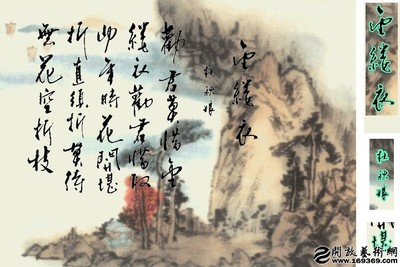 金縷衣
杜秋娘
勸君莫惜金
縷衣勸君惜取
少年時花開堪
折直須折莫待
無花空折枝
金縷衣
杜秋娘
堪
開放藝術網
www.169369.com